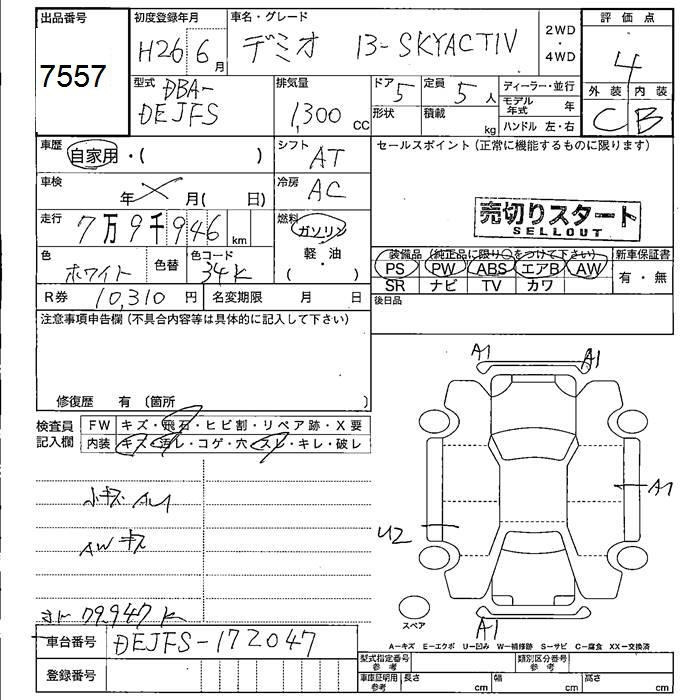 出品番号
7557
初度登録年月
H26 6月
車名・グレード
デミオ 13-SKYACTIV
2WD
・
4WD
評価点
4
外装 内装
C B
型式
DBA-
DEJFS
排気量
1,300 cc
ドア 5
形状
定員 5人
積載 kg
ディーラー・並行
モデル年式 年
ハンドル 左・右
車歴
自家用・( )
シフト AT
車検
年 月( 日)
冷房 AC
走行
7万9千946 km
燃料
ガソリン
軽・油
( )
色
ホワイト
色替
色コード
34K
R券 10,310円
名変期限 月 日
セールスポイント(正常に機能するものに限ります)
売切りスタート
SELLOUT
装備品(純正品に限り○をつけて下さい)
新車保証書
PS PW ABS エアB AW
SR ナビ TV カワ
有・無
後日品
注意事項申告欄(不具合内容等は具体的に記入して下さい)
修復歴 有(箇所 )
検査員
記入欄
FW キズ・飛石・ヒビ割・リペア跡・X要
内装 キズ・汚レ・コゲ・穴・スレ・キレ・破レ
小キズ AU
AWキズ
79.947K
車台番号 DEJFS-172047
登録番号
A1 A1
A1
U2
A1
スペア
A-キズ E-エクボ U-凹み W-補修跡 S-サビ C-腐食 XX-交換済
型式指定番号
参考
類別区分番号
参考
車庫証明用
参考
長さ cm 幅 cm 高さ cm